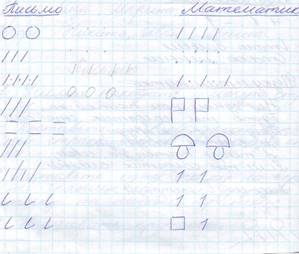 Письмо Математик
1 1
1 1
1